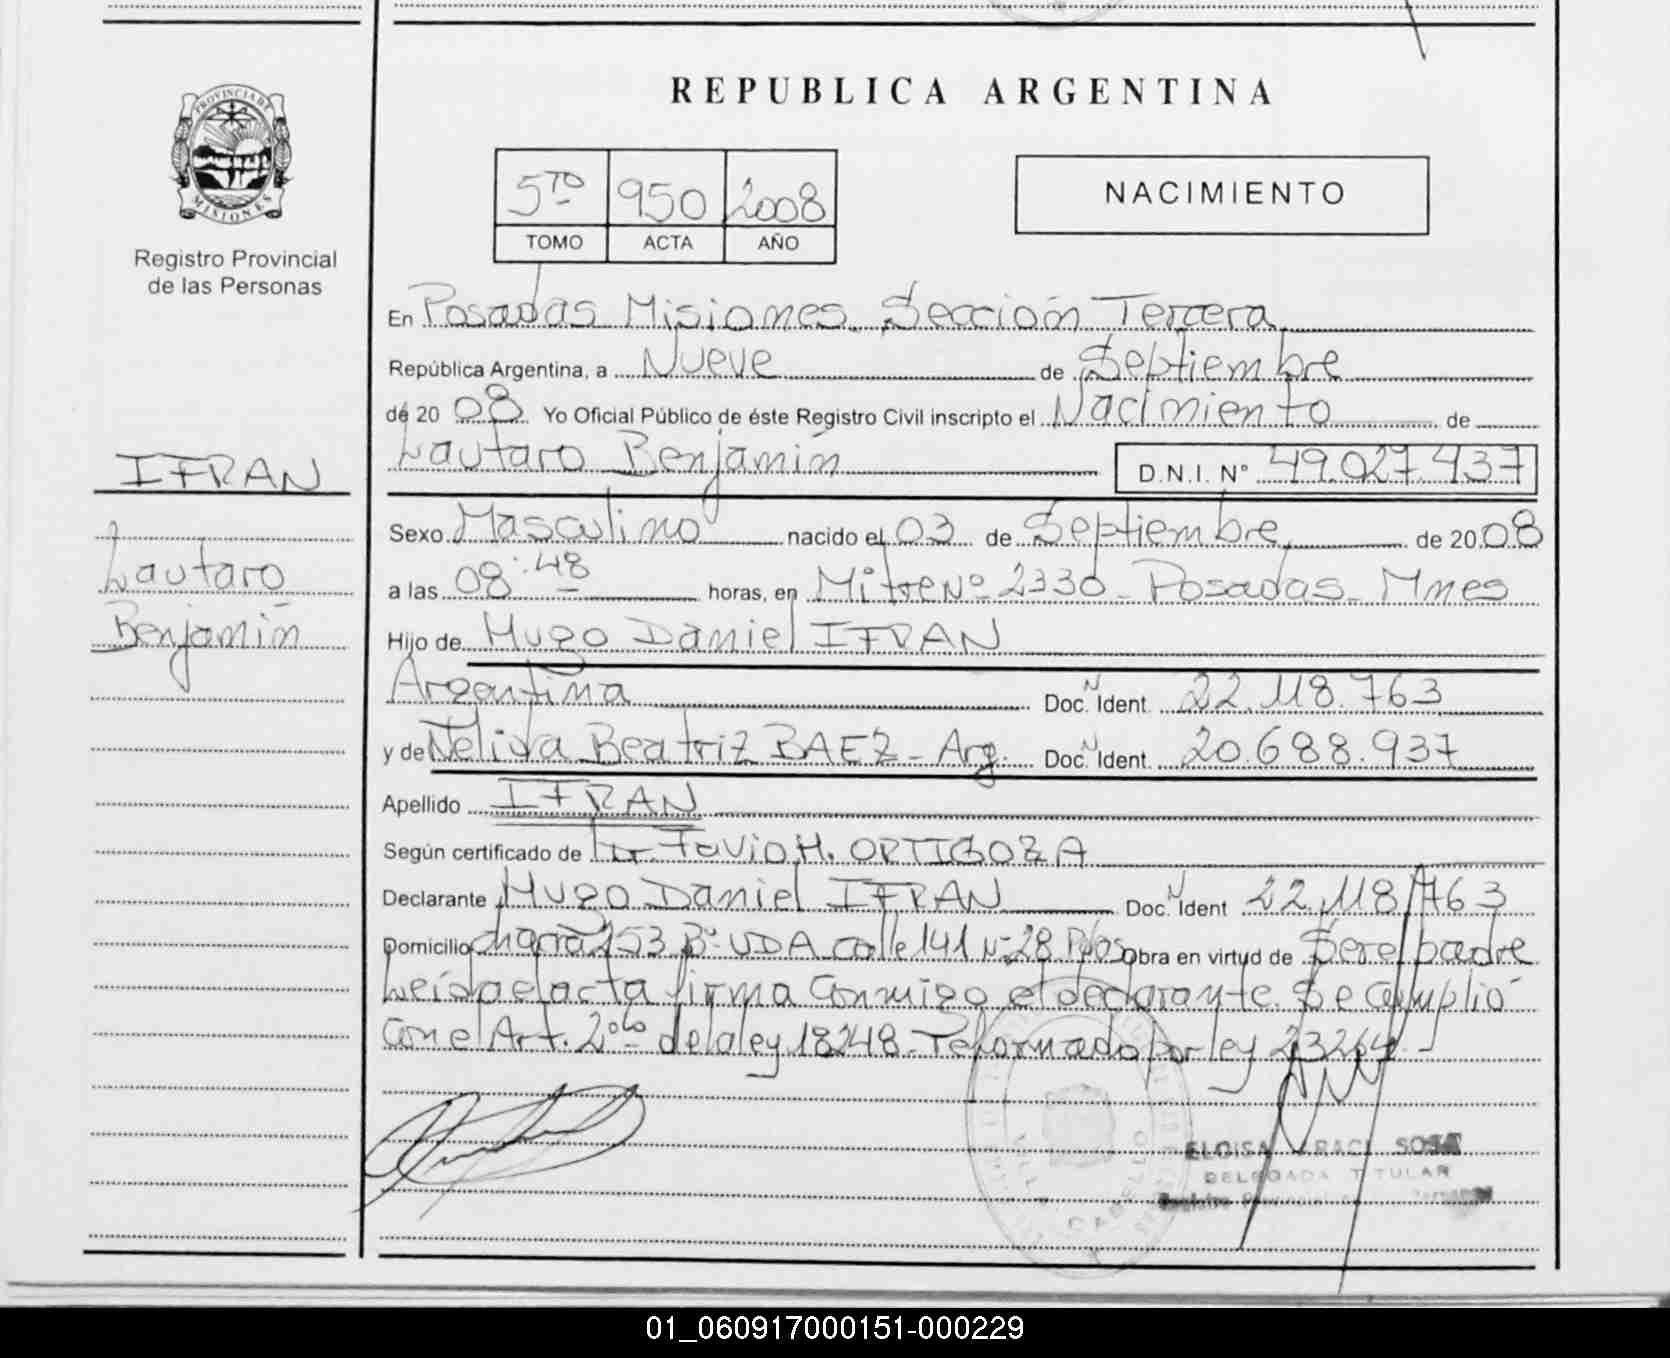 REPUBLICA ARGENTINA
PROVINCIA DE
MISIONES
Registro Provincial
de las Personas
5TO 950 2008
TOMO ACTA AÑO
NACIMIENTO
En Posadas Misiones Sección Tercera
República Argentina, a Nueve de Septiembre
de 20 08 Yo Oficial Público de éste Registro Civil inscripto el Nacimiento de
IFRAN
Lautaro Benjamín D.N.I. N° 49.027.437
Sexo Masculino nacido el 03 de Septiembre de 20 08
Lautaro
a las 08:48 horas, en Mitre Nº 2330 - Posadas - Mnes
Benjamín
Hijo de Hugo Daniel IFRAN
Argentina Doc. Ident. 22.118.763
y de Nelida Beatriz BAEZ - Arg. Doc. Ident. 20.688.937
Apellido IFRAN
Según certificado de Dr. Favio H. ORTIGOZA
Declarante Hugo Daniel IFRAN Doc. Ident 22.118.763
Domicilio chacra 253 Bº UDA calle 141 Nº 28 Pdas Obra en virtud de Ser el padre
Leída el acta firma conmigo el declarante. Se cumplió
con el Art. 2do de la ley 18248 - Reformado por ley 23264.
ELOISA ARACI SOSA
DELEGADA TITULAR
01_060917000151-000229